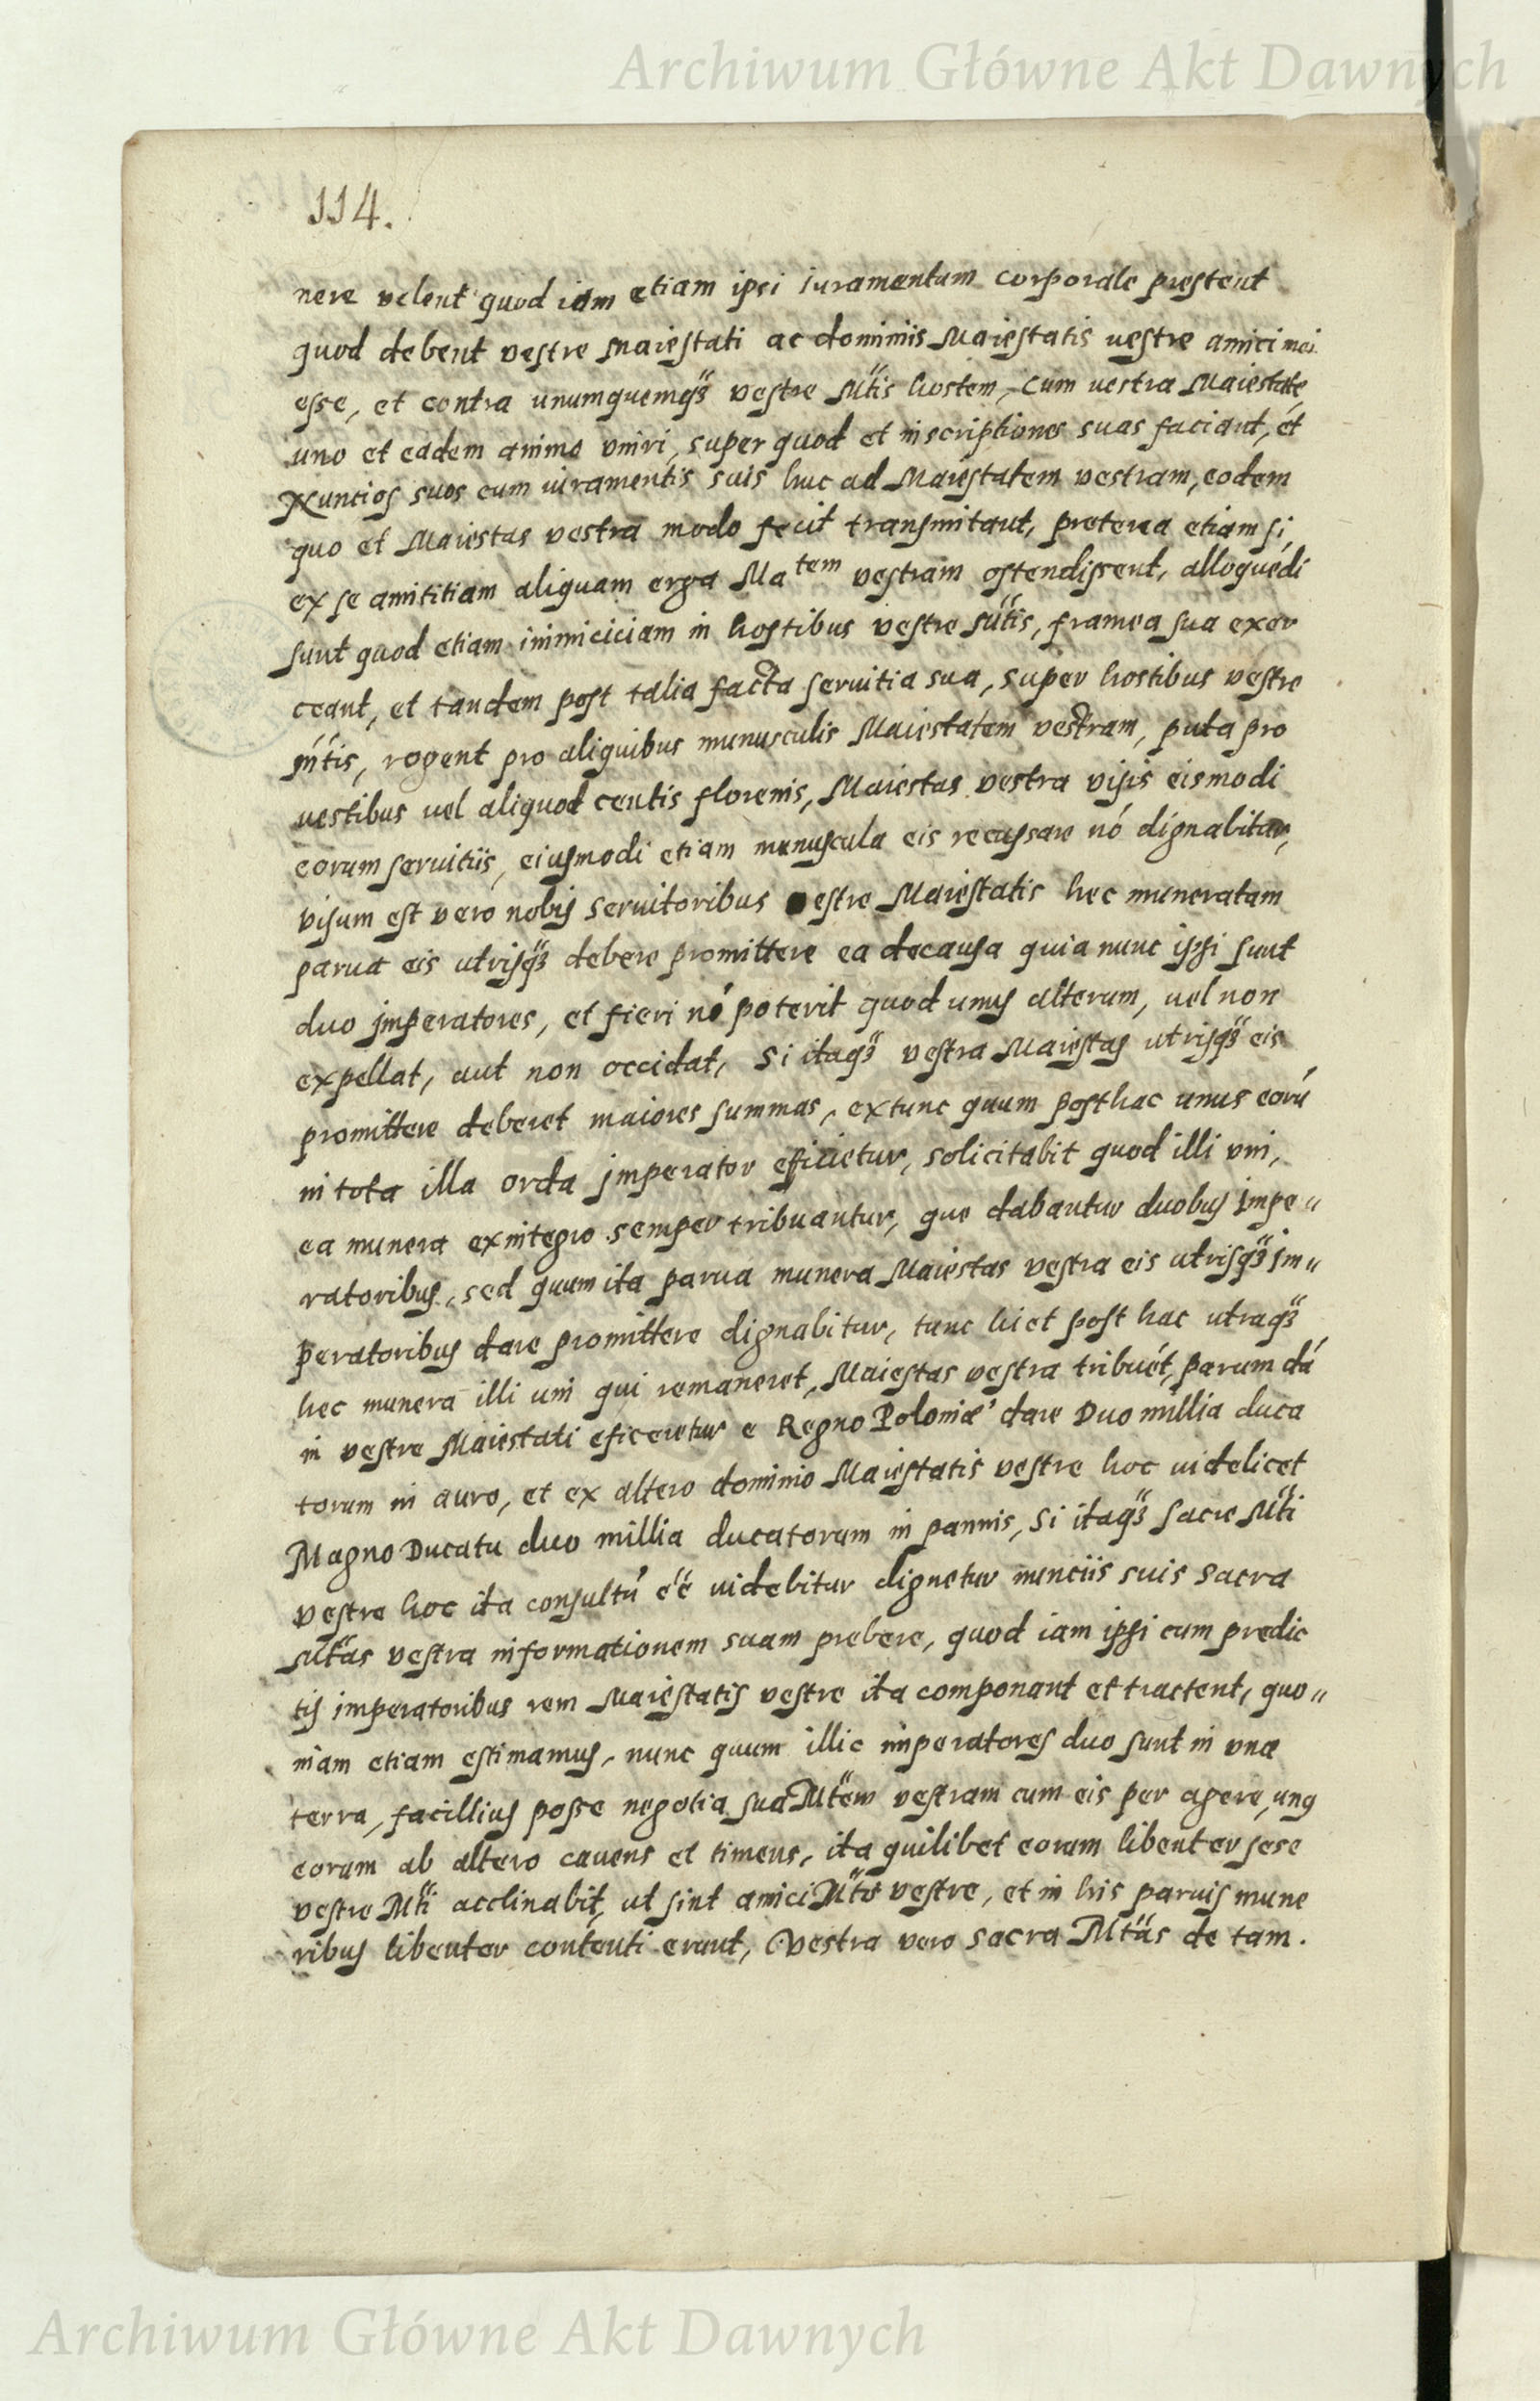 Archiwum Główne Akt Dawnych
114.
nere velent quod iam etiam ipsi iuramentum corporale prestent
quod debent vestre Maiestati ac dominiis Maiestatis vestre amici
esse, et contra unumquemqꝫ vestre Mtis hostem, cum vestra Maiestate
uno et eadem animo vniri, super quod et inscriptiones suas faciant, et
Nuncios suos cum iuramentis suis huc ad Maiestatem vestram, eodem
quo et Maiestas vestra modo fecit transmitant, preterea etiam si,
ex se amititiam aliquam erga Matem vestram ostendissent, alloquédi
sunt quod etiam inimiciciam in hostibus vestre Mtis, framea sua exer
ceant, et tandem post talia facta seruitia sua, super hostibus vestre
Mtis, rogent pro aliquibus munusculis Maiestatem vestram, puta pro
vestibus vel aliquod centis florenis, Maiestas vestra visis eismodi
eorum seruitiis, eiusmodi etiam munuscula eis recussare nó dignabitur,
visum est vero nobis seruitoribus estre Maiestatis hec muneratam
parua eis utrisqꝫ debere promittere ea decausa quia nunc ipsi sunt
duo imperatores, et fieri nó poterit quod unus alterum, vel non
expellat, aut non occidat, Si itaqꝫ vestra Maiestas utrisqꝫ eis
promittere deberet maiores summas, extunc quum posthac unus eorú
in tota illa orda imperator eficietur, solicitabit quod illi vni,
ea munera exintegro semper tribuantur, que dabantur duobus impe„
ratoribus, sed quum ita parua munera Maiestas vestra eis utrisqꝫ im„
peratoribus dare promittere dignabitur, tunc licet post hac utraqꝫ
hec munera illi uni qui remaneret, Maiestas vestra tribuét, parum dá
in vestre Maiestati eficeretur e Regno Poloniæ dare Duo millia duca
torum in auro, et ex altero dominio Maiestatis vestre hoc videlicet
Magno Ducatu duo millia ducatorum in pannis, Si itaqꝫ sacre Mti
vestre hoc ita consultú éé videbitur dignetur nunciis suis Sacra
Mtas vestra informationem suam prebere, quod iam ipsi cum predic
tis imperatoribus rem Maiestatis vestre ita componant et tractent, quo„
niam etiam estimamus, nunc quum illic imperatores duo sunt in una
terra, facillius posse negotia sua Mtem vestram cum eis per agere, unꝯ
eorum ab altero cauens et timens, ita quilibet eorum libenter sese
vestre Mti acclinabit, ut sint amici Mtis vestre, et in his paruis mune
ribus libenter contenti erunt, Vestra vero sacra Mtas de tam.
Archiwum Główne Akt Dawnych